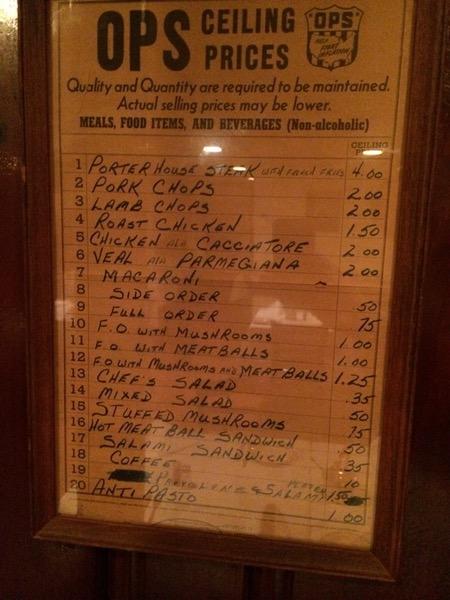 OPS CEILING PRICES
OPS
HELP FIGHT INFLATION
Quality and Quantity are required to be maintained.
Actual selling prices may be lower.
MEALS, FOOD ITEMS, AND BEVERAGES (Non-alcoholic)
CEILING
1 PORTERHOUSE STEAK WITH FRENCH FRIES 4.00
2 PORK CHOPS 2.00
3 LAMB CHOPS 2.00
4 ROAST CHICKEN 1.50
5 CHICKEN ALA CACCIATORE 2.00
6 VEAL ALA PARMEGIANA 2.00
7 MACARONI
8 SIDE ORDER .50
9 FULL ORDER 75
10 F.O. WITH MUSHROOMS 1.00
11 F.O. WITH MEATBALLS 1.00
12 F.O WITH MUSHROOMS AND MEATBALLS 1.25
13 CHEF'S SALAD .35
14 MIXED SALAD 50
15 STUFFED MUSHROOMS 75
16 HOT MEAT BALL SANDWICH .50
17 SALAMI SANDWICH 35
18 COFFEE 10
19 PROVOLONE & SALAMI 1.50
20 ANTI PASTO 1.00